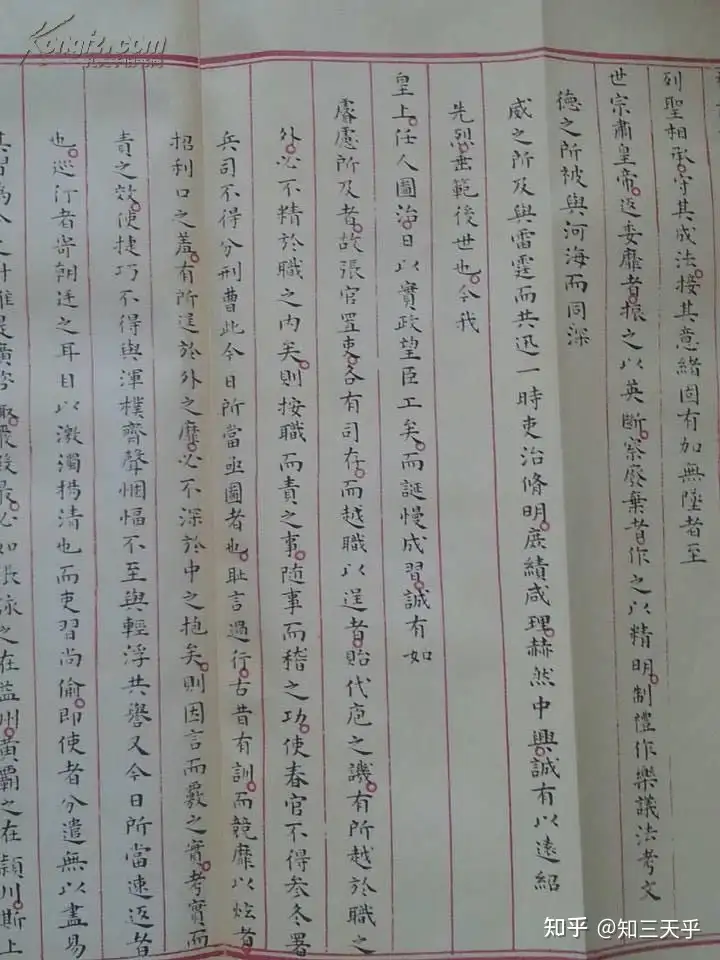 列聖相承守其成法接其意緒固有加無墜者至
世宗肅皇帝返委靡者振之以英斷察廢棄者作之以精明制禮作樂議法考文
德之所被與河海而同深
威之所及與雷霆而共迅一時吏治脩明庶績咸理赫然中興誠有以遠紹
先烈垂範後世也今我
皇上任人圖治日以實政望臣工矣而誕慢成習誠有如
睿慮所及者故張官置吏各有司存而越職以逞者貽代庖之譏有所越於職之
外必不精於職之內矣則按職而責之事隨事而稽之功使春官不得參冬署
兵司不得分刑曹此今日所當亟圖者也恥言過行古昔有訓而競靡以炫者
招利口之羞有所逞於外之靡必不深於中之抱矣則因言而覈之實考實而
責之效使捷巧不得與渾樸齊聲悃愊不至與輕浮共譽又今日所當速返者
也巡行者寄朝廷之耳目以激濁揚清也而吏習尚偷即使者分遣無以盡易
其習為今之計惟是廣咨諏嚴殿最必如張詠之在益州黃霸之在潁川斯上
Kongfz.com
知乎 @知三天乎